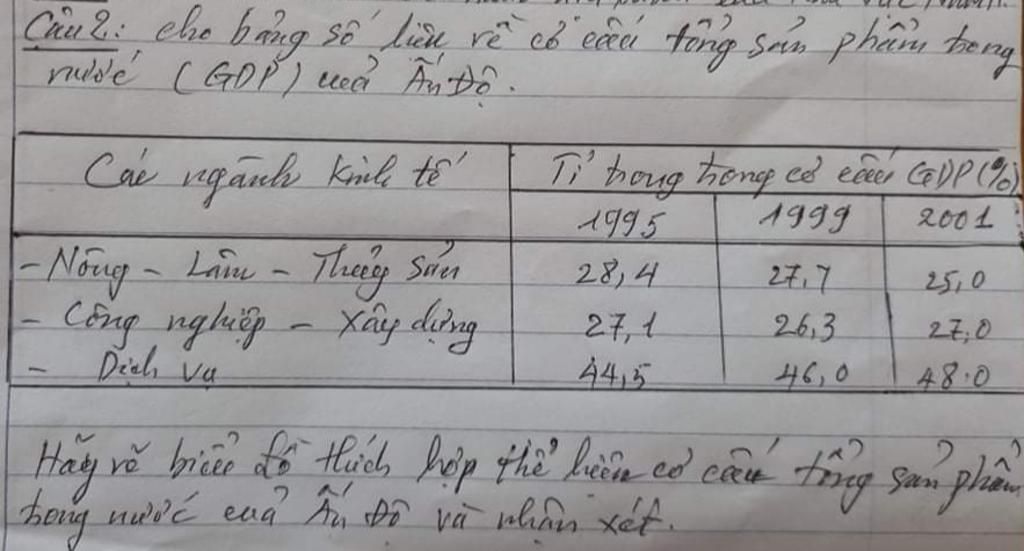 Câu 2: Cho bảng số liệu về cơ cấu tổng sản phẩm trong
nước (GDP) của Ấn Độ.
Các ngành kinh tế
Tỉ trọng trong cơ cấu GDP (%)
1995 1999 2001
- Nông - Lâm - Thủy sản 28,4 27,7 25,0
- Công nghiệp - Xây dựng 27,1 26,3 27,0
- Dịch vụ 44,5 46,0 48.0
Hãy vẽ biểu đồ thích hợp thể hiện cơ cấu tổng sản phẩm
trong nước của Ấn Độ và nhận xét.